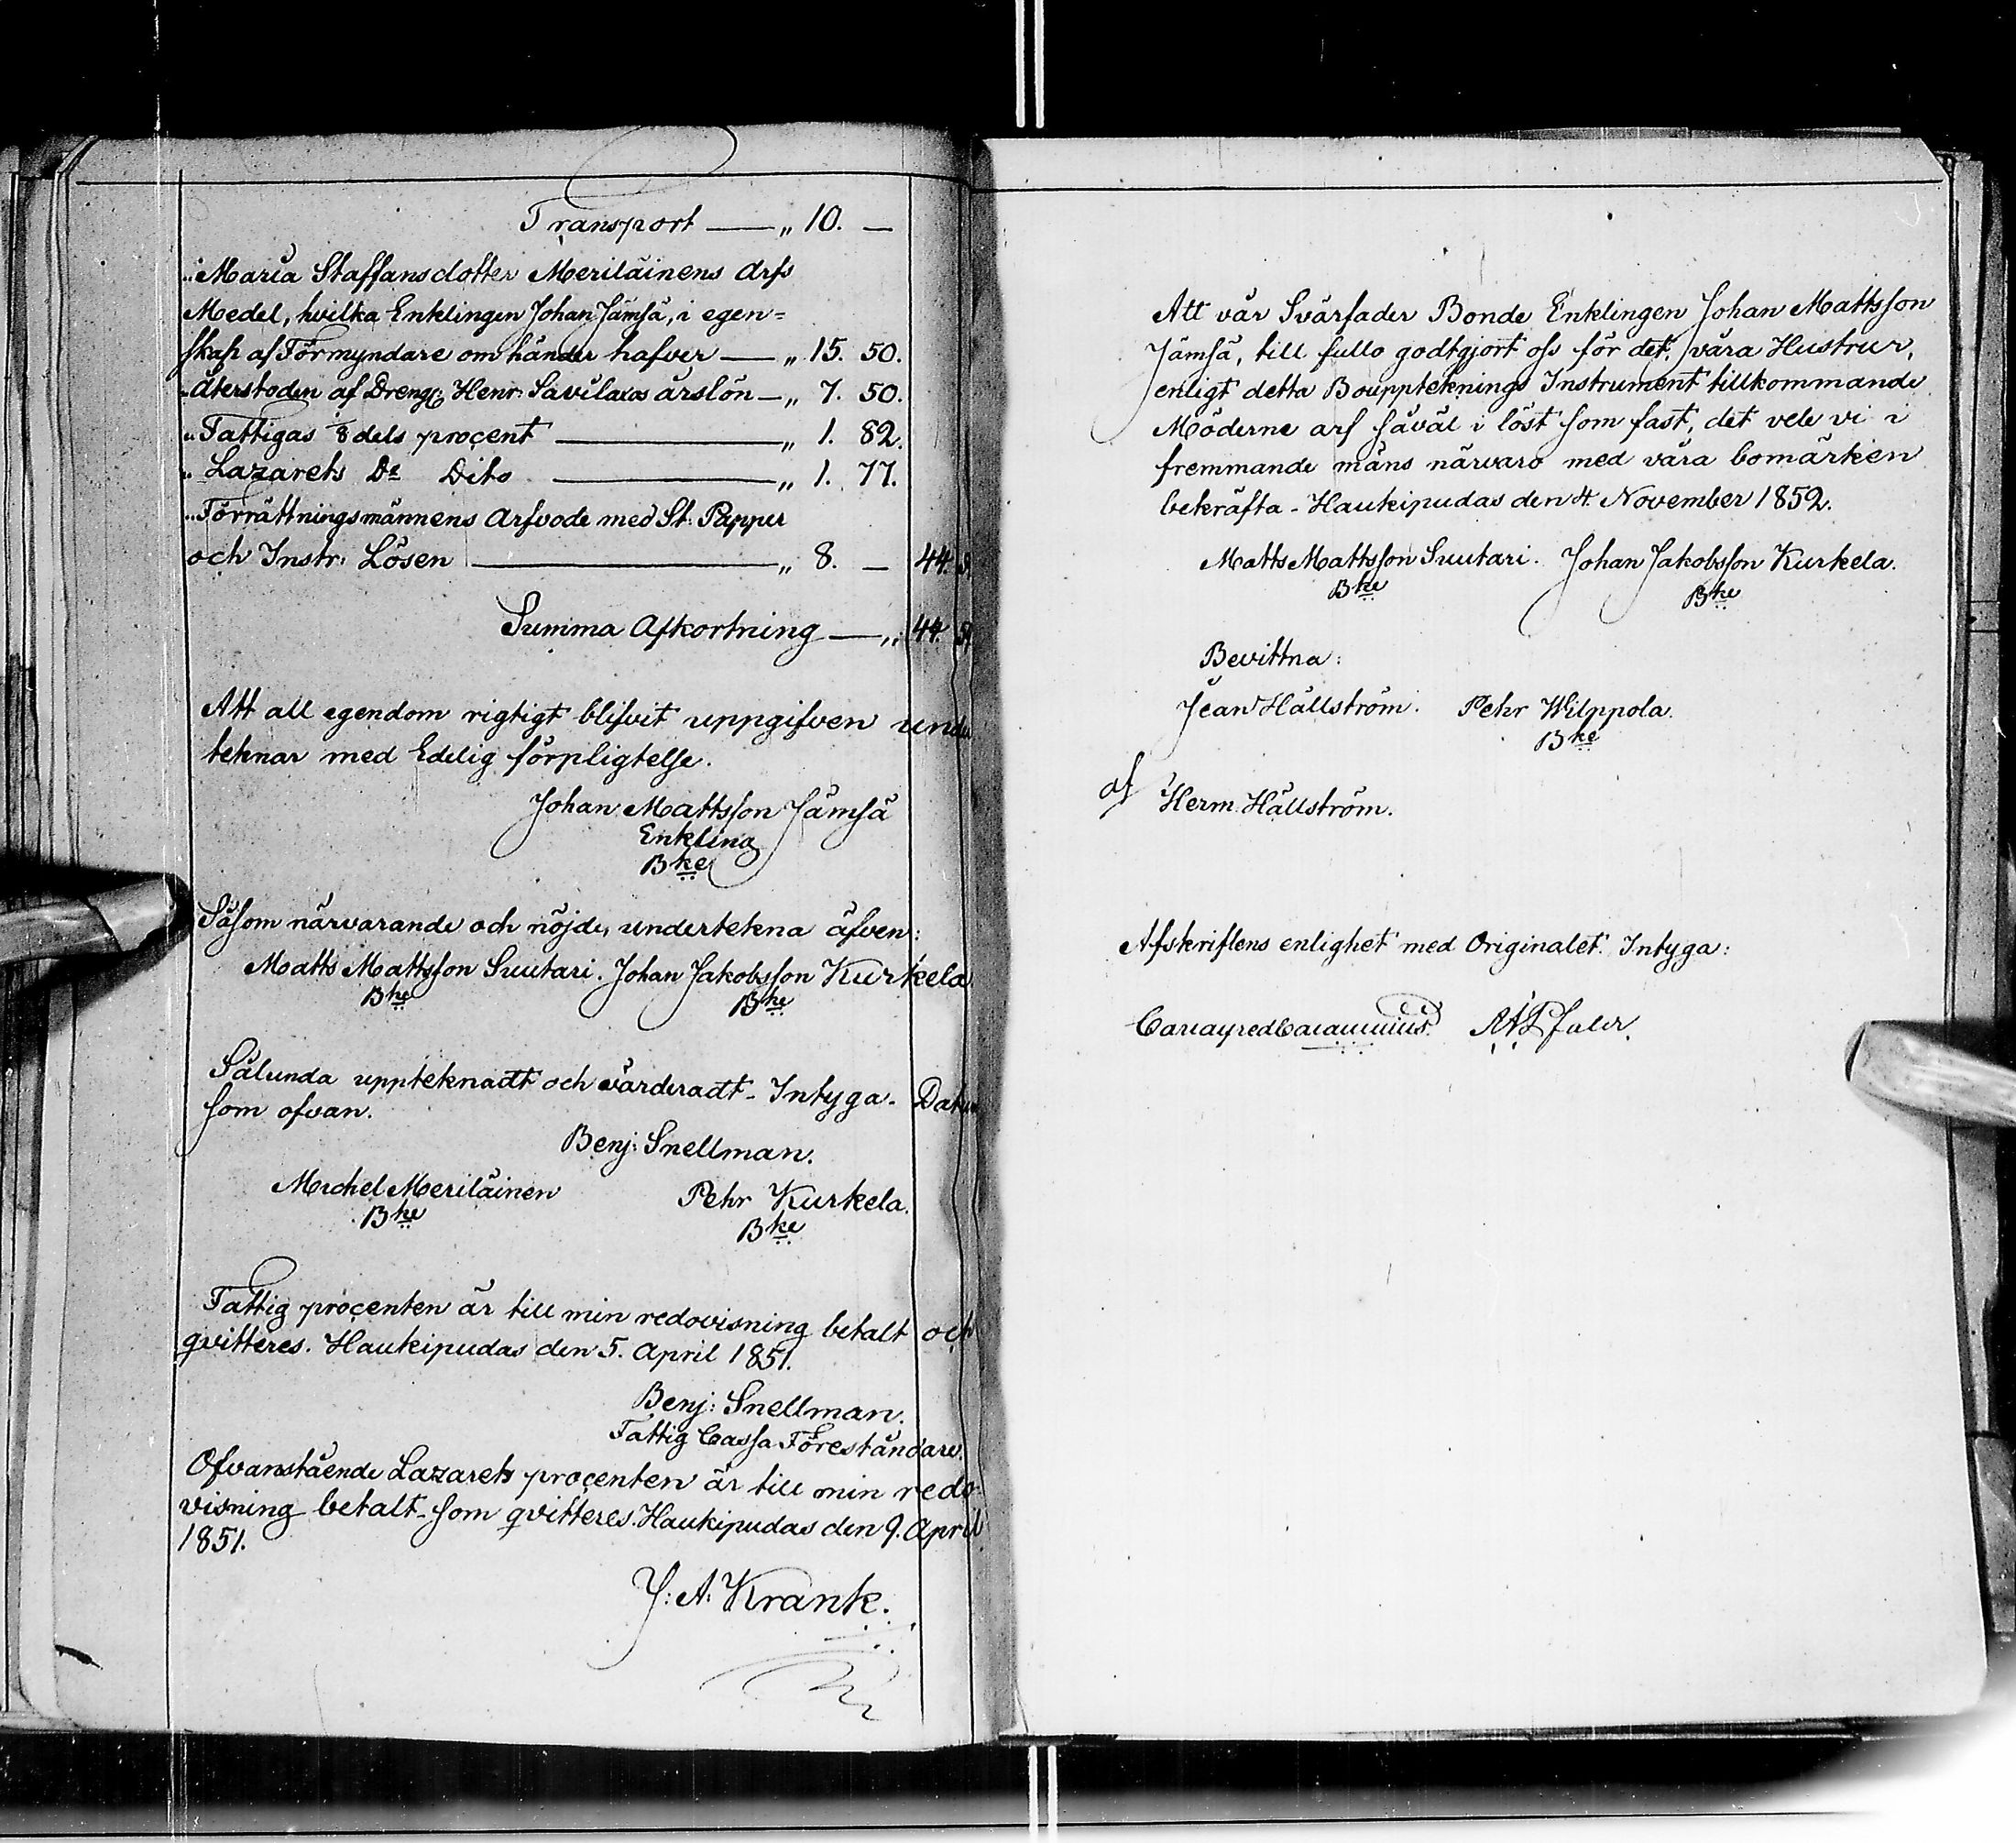 Transport — „ 10. —
„ Maria Staffansdotter Meriläinens Arfs
Medel, hvilka Enklingen Johan Jämsä, i egen=
skap af Förmyndare om händer hafver — „ 15. 50.
„ Återstoden af Dreng: Henr: Savilaxos årslön — „ 7. 50.
„ Fattigas 1/8 dels procent — „ 1. 82.
„ Lazarets Do Dito — „ 1. 77.
„ Förrättningsmännens Arfvode med St. Papper
och Instr: Lösen — „ 8. — 44.
Summa Afkortning — „ 44.
Att all egendom rigtigt blifvit uppgifven under
teknar med Edelig förpligtelse.
Johan Mattsson Jämsä
Enkling
Bke
Såsom närvarande och nöjde, undertekna äfven:
Matts Mattsson Suutari. Johan Jakobsson Kurkela
Bke Bke
Sålunda uppteknadt och värderadt - Intyga - Datum
som ofvan.
Benj: Snellman.
Michel Meriläinen Pehr Kurkela.
Bke Bke
Fattig procenten är till min redovisning betalt och
qvitteres. Haukipudas den 5. April 1851.
Benj: Snellman.
Fattig Cassa Föreståndare.
Ofvanstående Lazarets procenten är till min redo-
visning betalt - som qvitteres. Haukipudas den 9. April
1851.
J: A: Krank.
Att vår Svärfader Bonde Enklingen Johan Mattsson
Jämsä, till fullo godtgjort oss för det, våra Hustrur,
enligt detta Bouppteknings Instrument tillkommande
Möderne arf såväl i löst som fast, det vele vi i
fremmande mäns närvaro med våra bomärken
bekräfta - Haukipudas den 4. November 1852.
Matts Mattsson Suutari. Johan Jakobsson Kurkela.
Bke Bke
Bevittna:
Jean Hällström. Pehr Wilppola.
Bke
af Herm. Hällström.
Afskriftens enlighet med Originalet. Intyga: